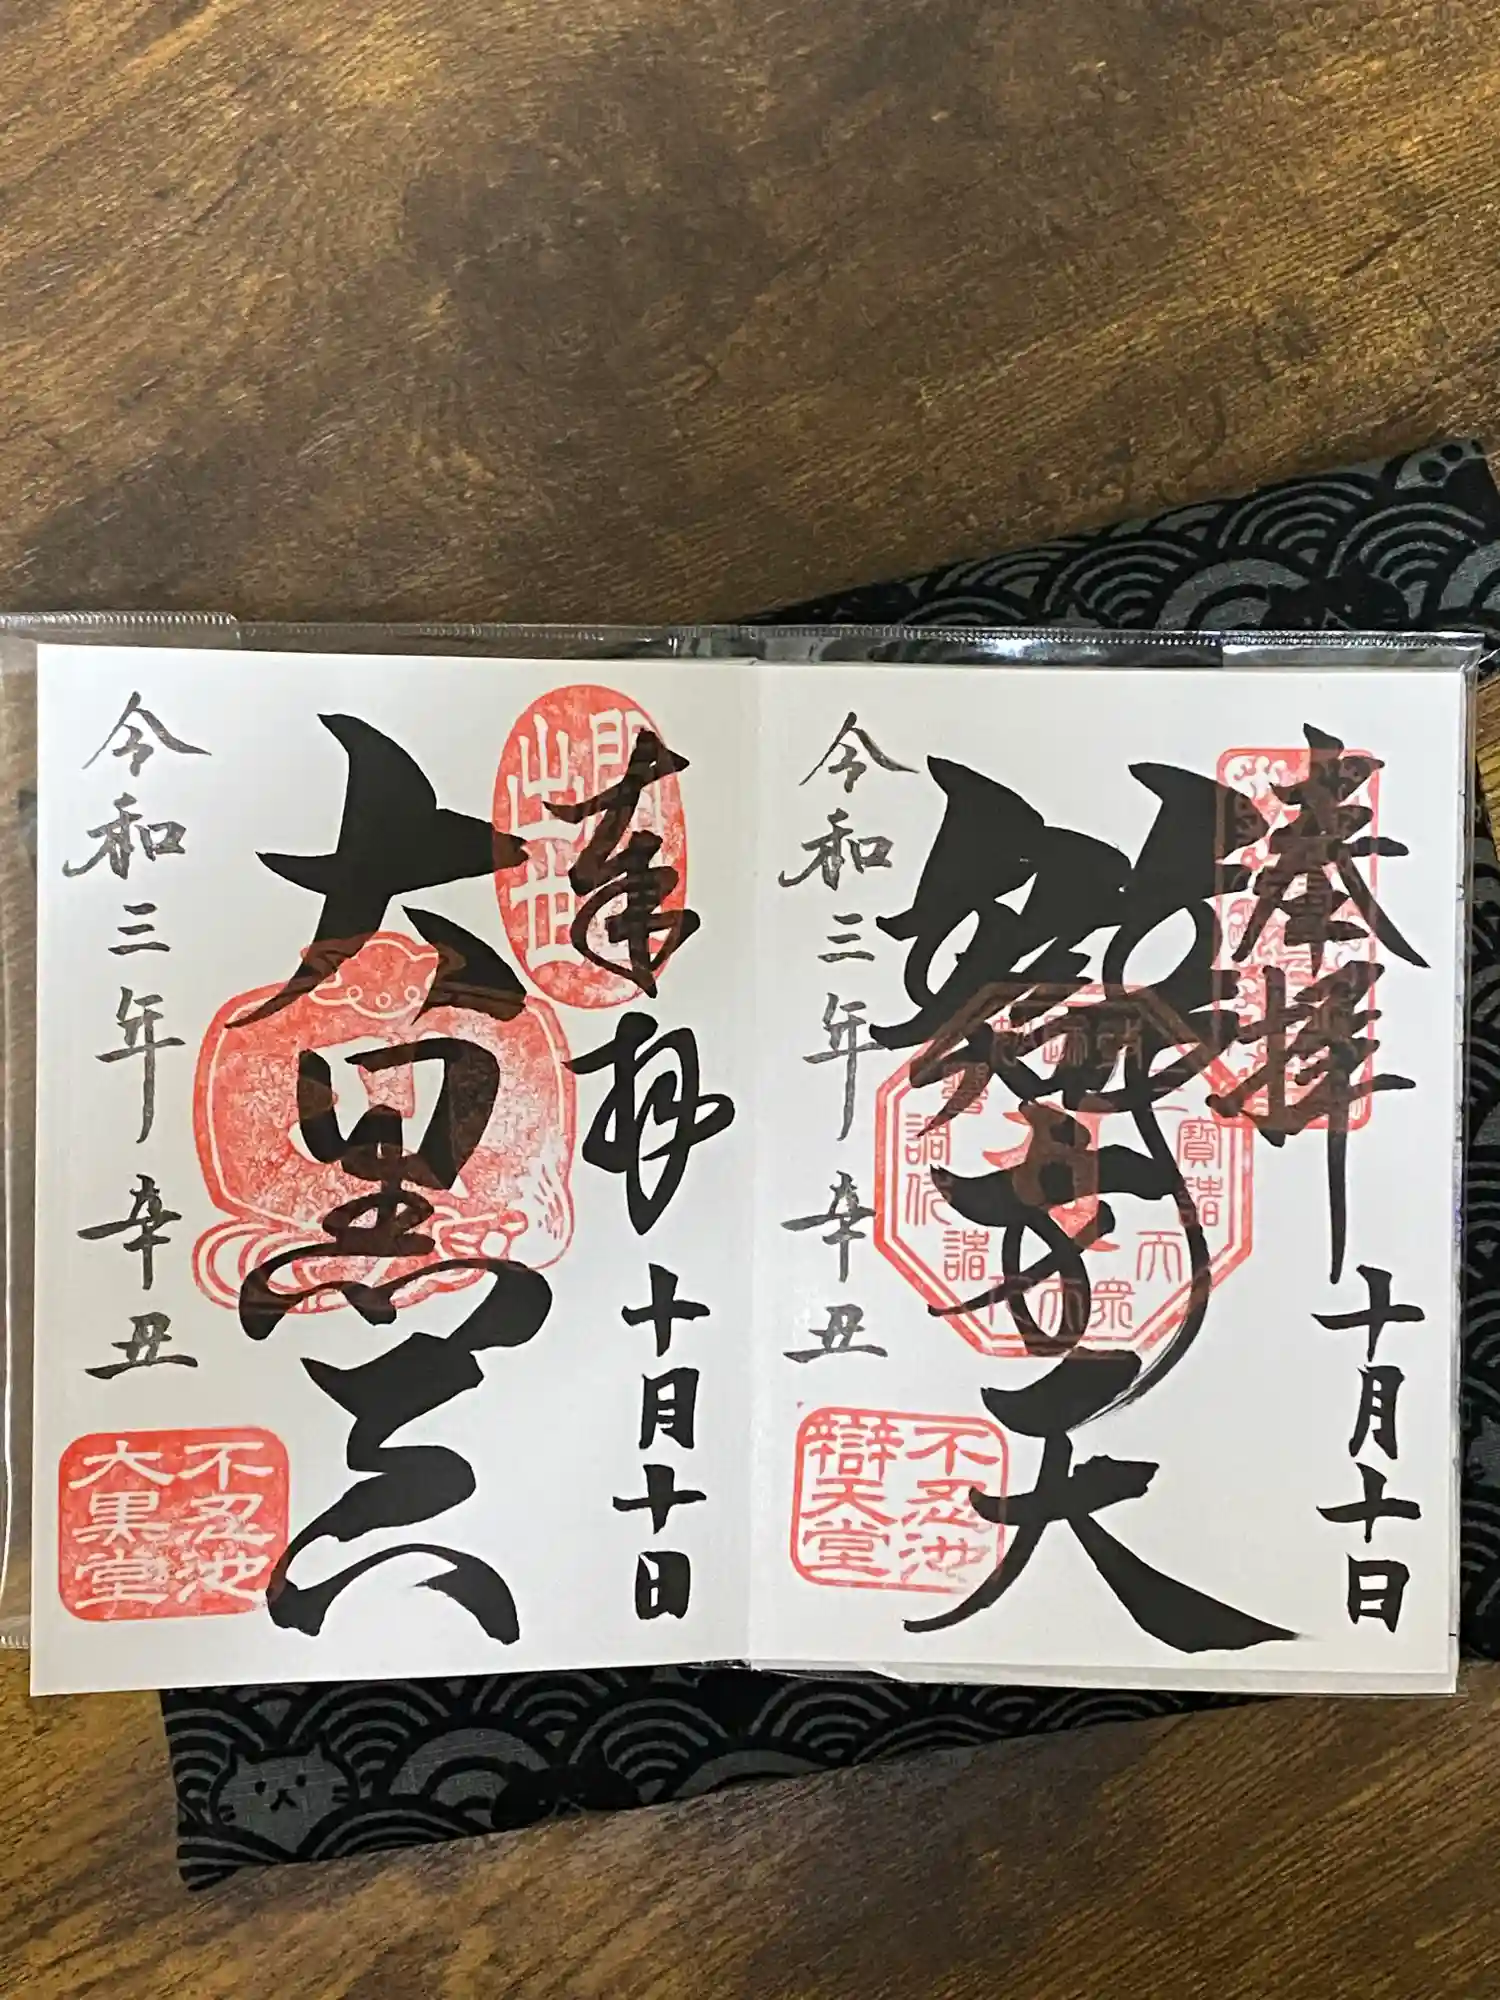 奉拝
十月十日
辨才天
令和三年辛丑
不忍池
辯天堂
奉拝
十月十日
大黒天
令和三年辛丑
不忍池
大黒堂